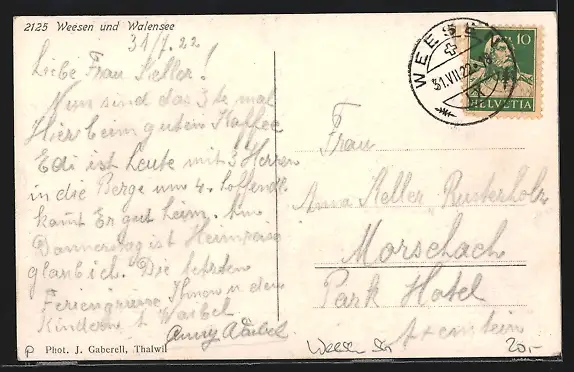 2125 Weesen und Walensee
31/7. 22
Liebe Frau Keller!
Nun sind das 3te mal
Hier beim guten Kaffee
Edi ist heute mit 3 Herren
in die Berge um 4. hoffentl.
kommt Er gut heim. Am
Donnerstag ist Heimreise
glaub ich. Die letzten
Feriengrüsse Ihnen u den
Kindern
Anny
Phot. J. Gaberell, Thalwil
WEESEN
31.VII.22
10
HELVETIA
Frau
Anna Keller Rusterholz
Morschach
Park Hotel
Axenstein
Weesen SG
20,-